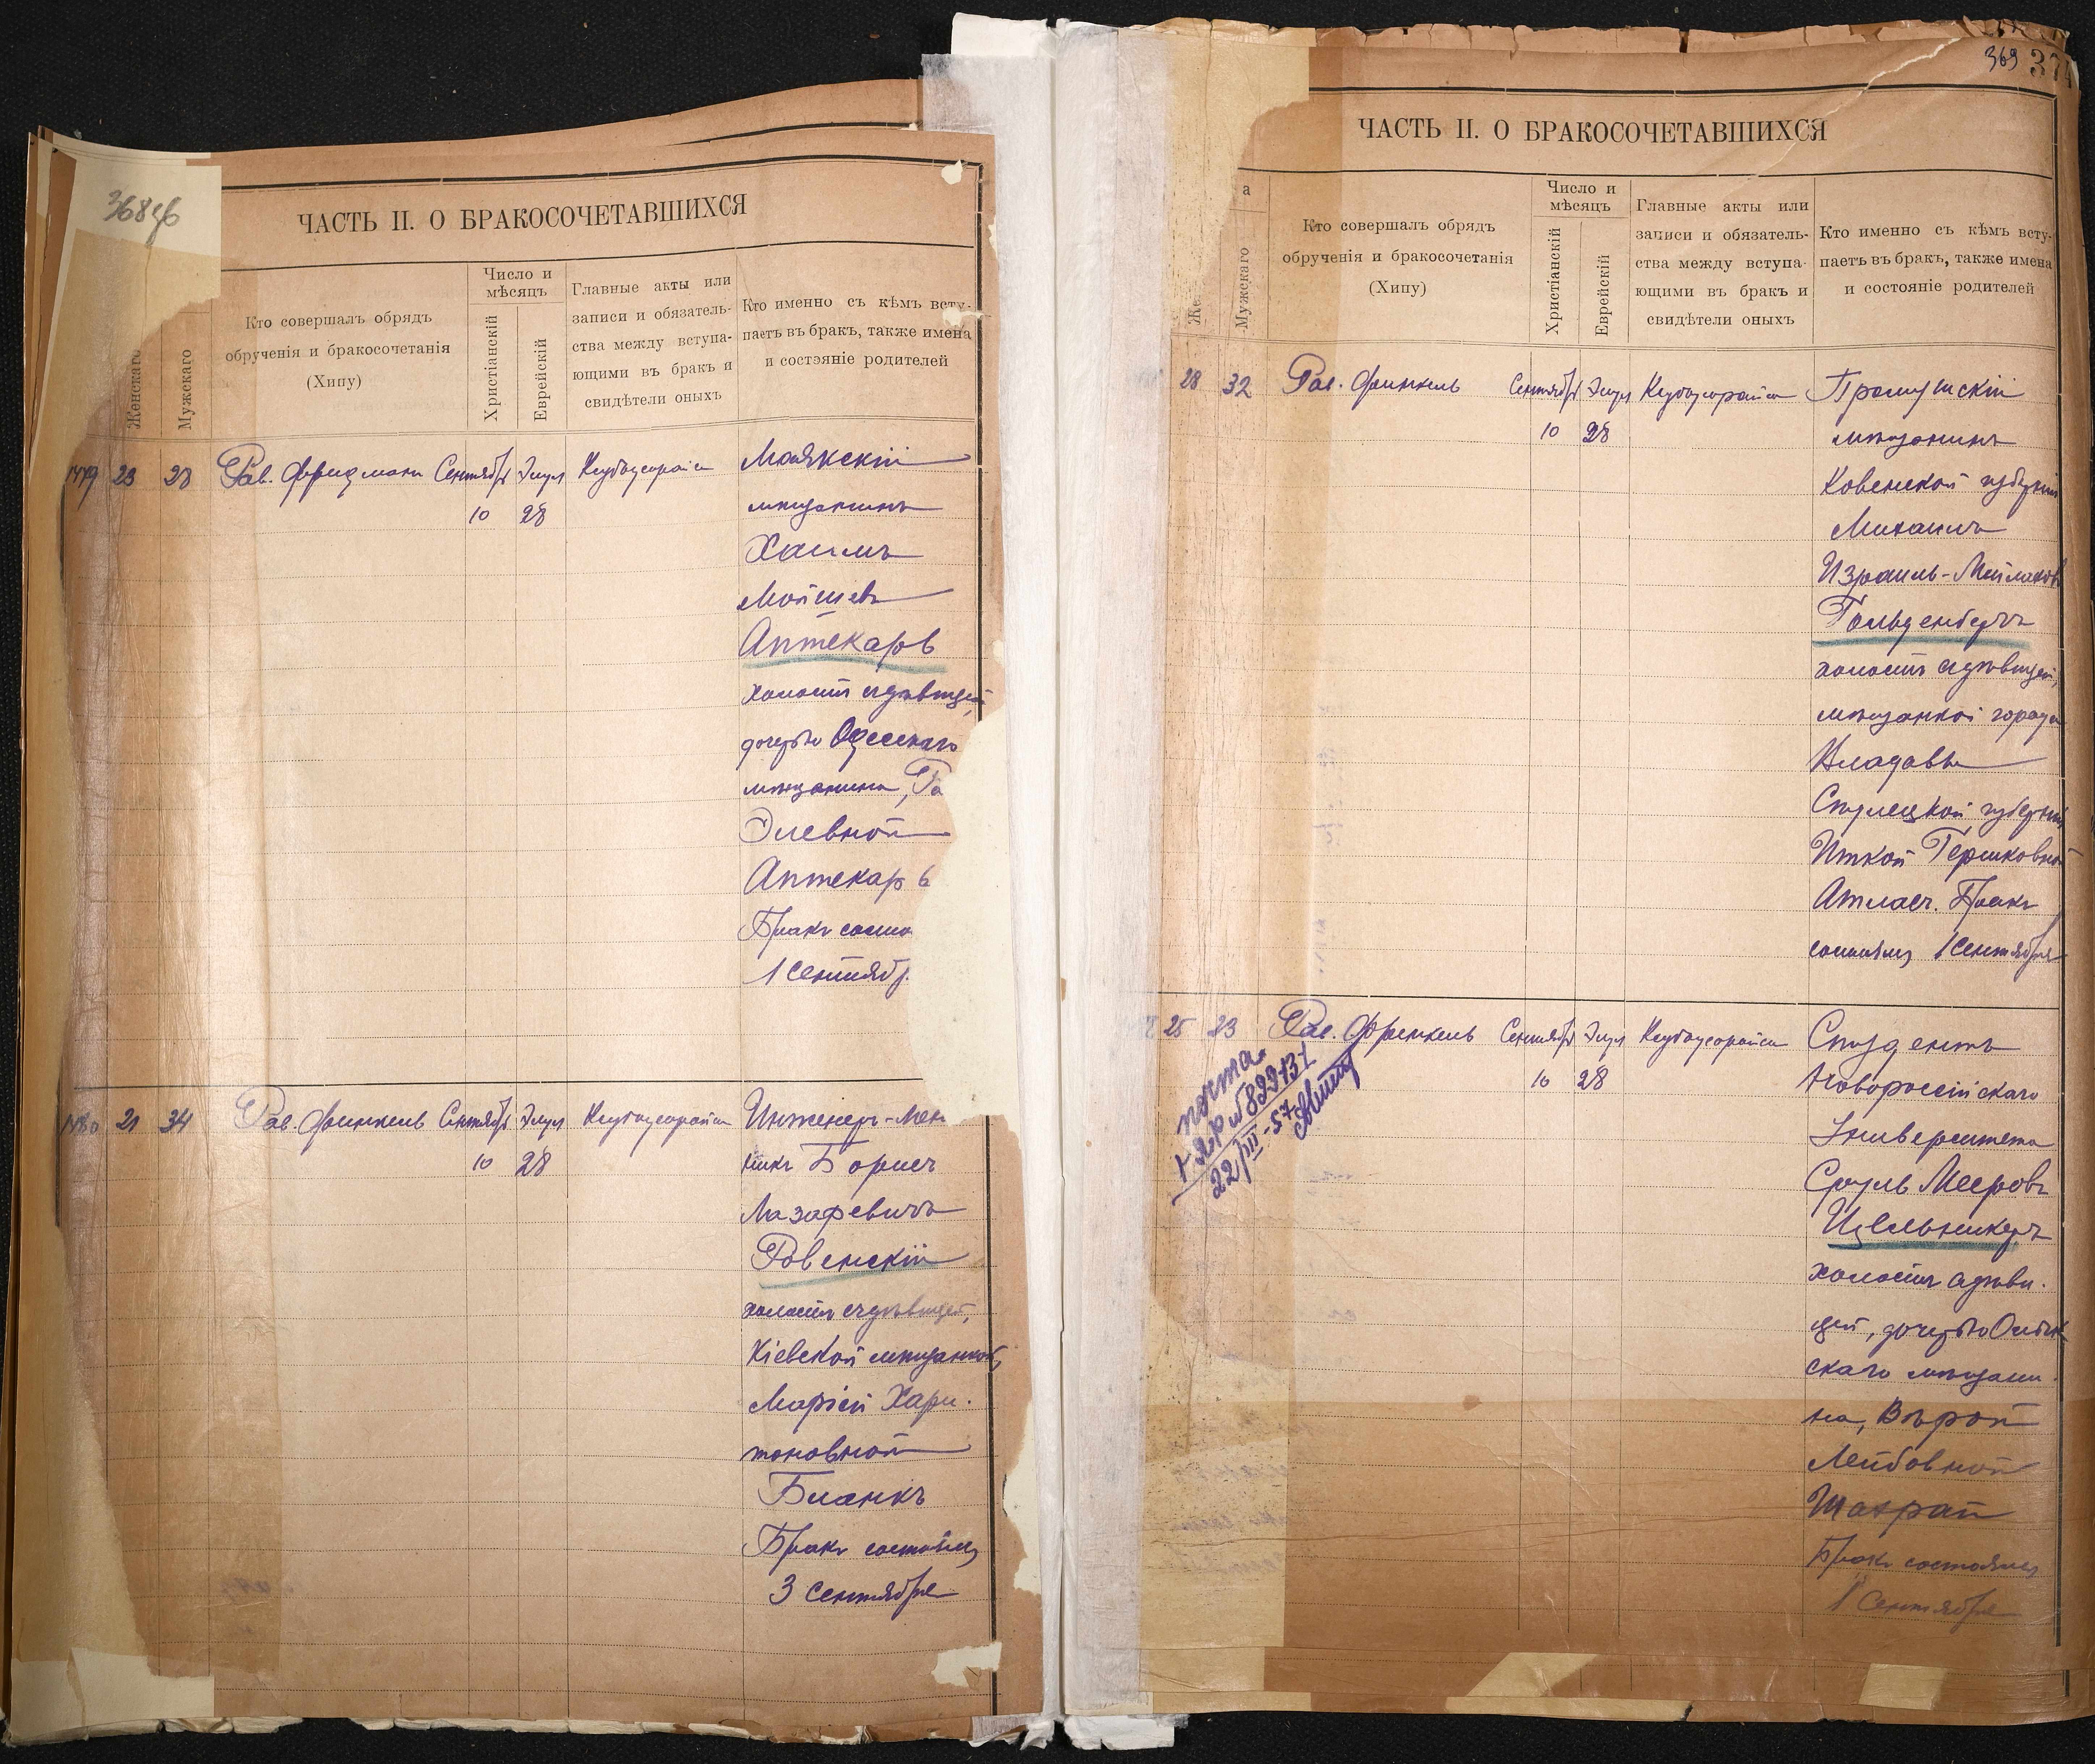 368зв
ЧАСТЬ II. О БРАКОСОЧЕТАВШИХСЯ
Женскаго
Мужскаго
Кто совершалъ обрядъ
обрученія и бракосочетанія
(Хипу)
Число и
мѣсяцъ
Христіанскій
Еврейскій
Главные акты или
записи и обязатель-
ства между вступа-
ющими въ бракъ и
свидѣтели оныхъ
Кто именно съ кѣмъ всту-
паетъ въ бракъ, также имена
и состояніе родителей
1479 23 28 Рав. Фридманъ Сентября Элул Кедбусорайса Маякскій
10 28 мѣщанинъ
Хаимъ
Мойшевъ
Аптекарь
холостъ съ дѣвицей,
дочерью Одесскаго
мѣщанина,
Элевной
Аптекарь
Бракъ состо
1 Сентябр.
1480 21 34 Рав. Финкель Сентября Элул Кедбусорайса Инженеръ-Мех
10 28 никъ Борисъ
Лазаревичъ
Ровенскій
холостъ съ дѣвицей,
Кіевской мѣщанкой,
Маріей Хари-
тоновной
Бланкъ
Бракъ состоялся
3 Сентября
369 37
ЧАСТЬ II. О БРАКОСОЧЕТАВШИХСЯ
а
Же
Мужскаго
Кто совершалъ обрядъ
обрученія и бракосочетанія
(Хипу)
Число и
мѣсяцъ
Христіанскій
Еврейскій
Главные акты или
записи и обязатель-
ства между вступа-
ющими въ бракъ и
свидѣтели оныхъ
Кто именно съ кѣмъ всту-
паетъ въ бракъ, также имена
и состояніе родителей
28 32 Рав. Финкель Сентября Элул Кедбусорайса
10 28 мѣщанинъ
Ковенской губерніи
Михаилъ
Израиль-Мейлаховъ
Гольденбергъ
холостъ съ дѣвицей,
мѣщанкой города
Владавы
Сѣдлецкой губерніи
Иткой Гершковной
Атласъ. Бракъ
состоялся 1 Сентября
25 23 Рав. Френкель Сентября Элул Кедбусорайса Студентъ
10 28 Новороссійскаго
Университета
Сруль Мееровъ
Цвельникеръ
холостъ съ дѣви-
цей, дочерью
скаго мѣщани-
на, Вѣрой
Лейбовной
Шахрай
Бракъ состоялся
1 Сентября
почта
22/III-57